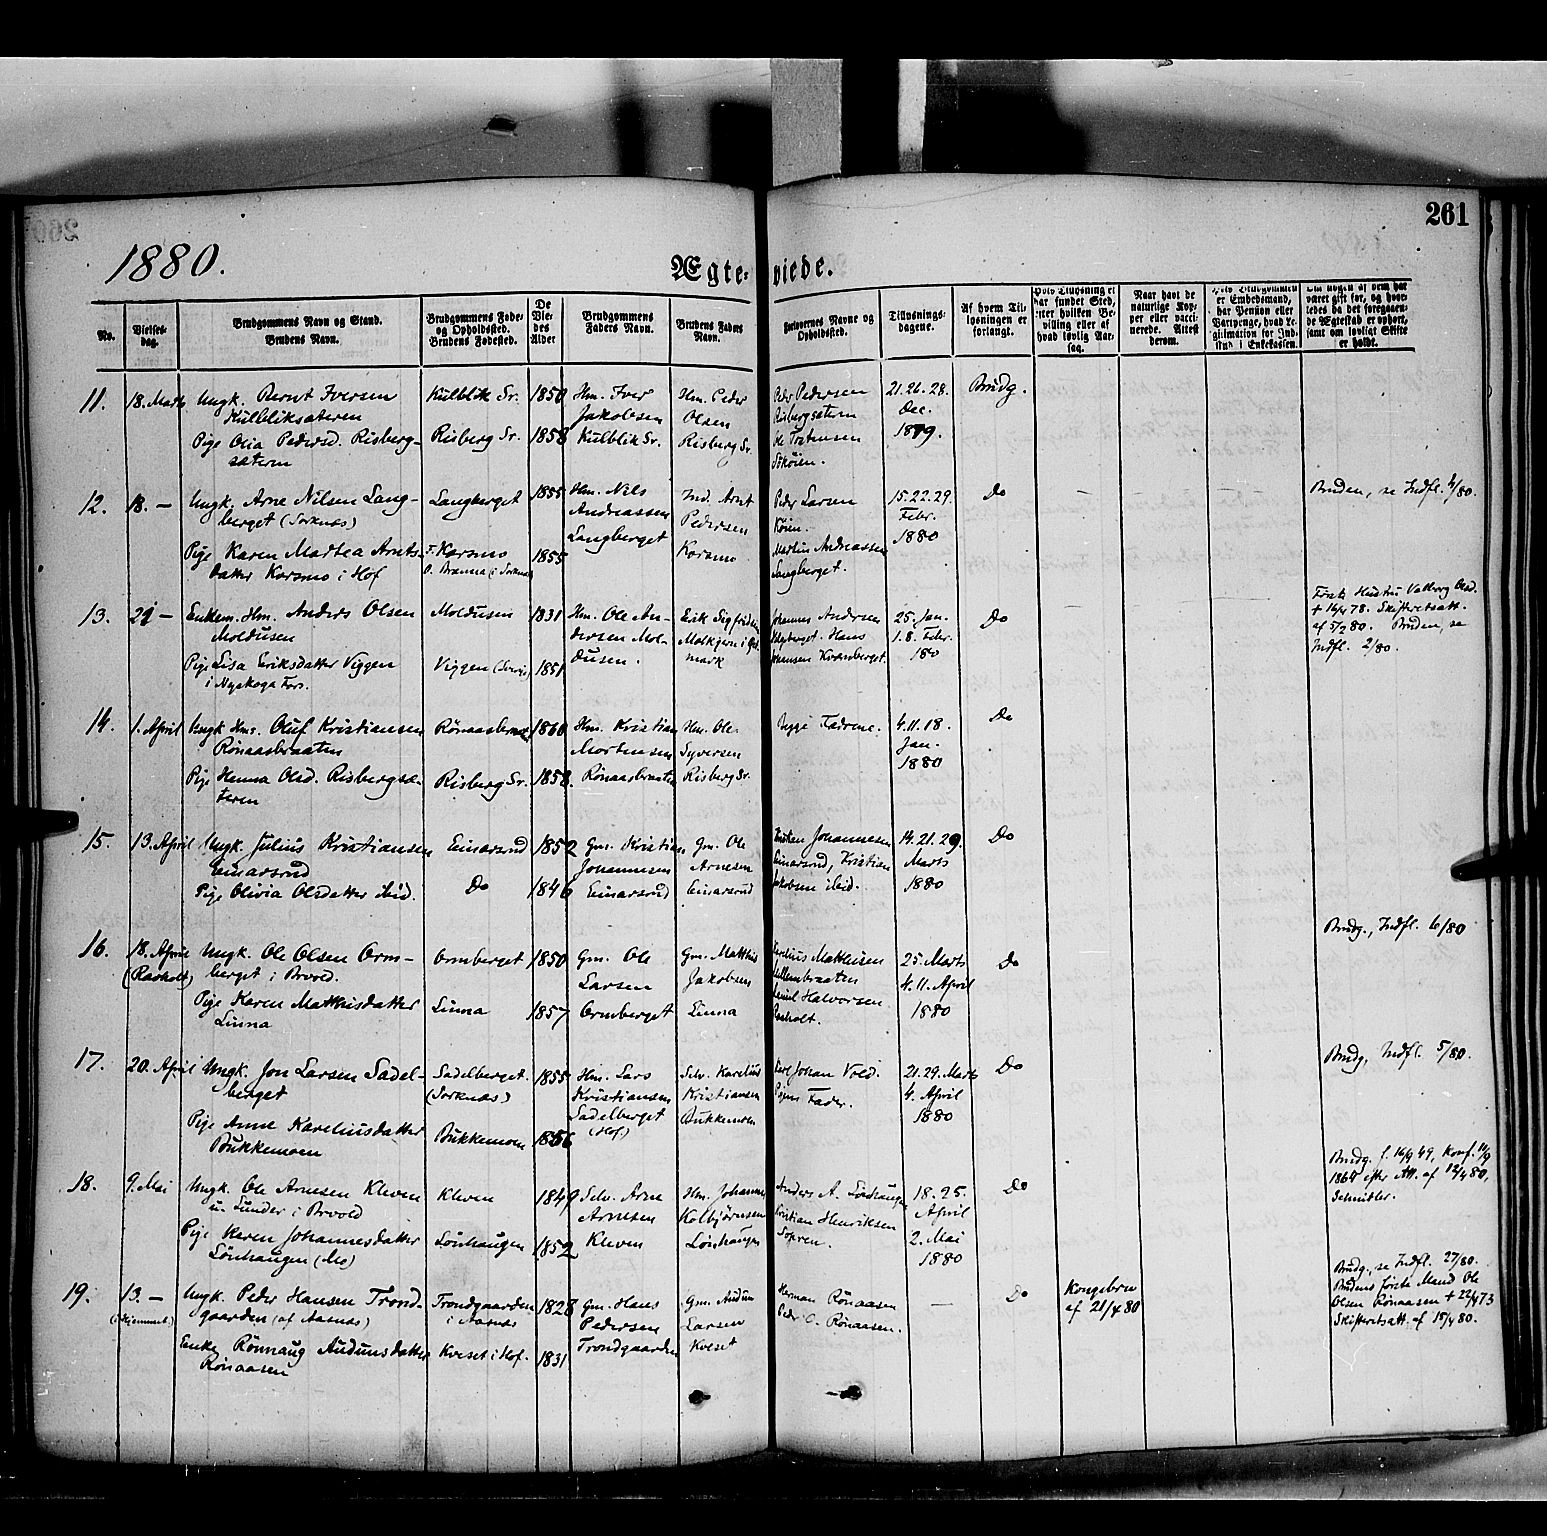 261
1880.
Ægte-viede.
No.
Vielses-dag.
Brudgommens Navn og Stand.
Brudens Navn.
Brudgommens Føde- og Opholdssted.
Brudens Fødested.
De Viedes Alder
Brudgommens Faders Navn.
Brudens Faders Navn.
Forlovernes Navne og Opholdssted.
Tillysnings-dagene.
Af hvem Tillysningen er forlangt.
Naar havt de naturlige Kopper eller vaccinerede. Attest derom.
11. 18. Marts Ungk. Bernt Iversen Kulblik Sr. 1850 Hm. Iver Hm. Peder Peder Pedersen 21. 26. 28. Brudg.
Kulbliksæteren Jakobsen Olsen Risbergsætern Dec.
Pige Olia Pedersd. Risberg- Risberg Sr. 1858 Kulblik Sr. Risberg Sr. Ole 1879.
sætern
12. 18. — Ungk. Arne Nilsen Lang- Langberget 1855 Hm. Nils Ind. Arnt Peder Larsen 15. 22. 29. Do Bruden, se Indfl. 4/80.
berget (Sorknæs) Andreassen Pedersen Febr.
Langberget Korsmo 1880
Pige Karen Martea Arnts- F. Korsmo 1855 Martin Andreassen
datter Korsmo i Hof O. Brænna (i Sorknæs) Langberget.
13. 21 — Enkem. Hm. Anders Olsen Moldusen 1831 Hm. Ole An- Erik Sigfridsen Johannes Andersen 25. Jan. Do Første Hustru Valborg Olsd.
Moldusen dersen Mol- Hans 1. 8. Febr. + 16/4 78. Skifteretsatt.
dusen. 180 af 5/2 80. Bruden, se
Pige Lisa Eriksdatter Viggen Viggen (Sverig) 1851 mark Johansen Indfl. 2/80.
i Nyskoga Fors.
14. 1. April Ungk. Hms. Oluf Kristiansen Rönaasbraaten 1860 Hm. Kristian Hm. Ole Begge Fædrene. 4. 11. 18. Do
Rönaasbraaten Mortensen Syversen Jan.
Pige Henna Olsd. Risbergsæ- Risberg Sr. 1858. Rönaasbraaten Risberg Sr. 1880
teren
15. 13. April Ungk. Julius Kristiansen Einarsrud 1852 Gm. Kristian Gm. Ole Kristian Johannesen 14. 21. 29. Do
Einarsrud Johannesen Arnesen Einarsrud, Kristian Marts
Pige Olivia Olsdatter ibid. Do 1846 Einarsrud Einarsrud Jakobsen ibid. 1880
16. 18. April Ungk. Ole Olsen Orm- Ormberget 1850 Gm. Ole Gm. Mathis Karelius Mathisen 25. Marts Do Brudg., Indfl. 6/80
(Raaholt) berget i Brvold. Larsen Jakobsen 4. 11. April
Pige Karen Mathisdatter Linna 1857 Ormberget Linna Halvorsen 1880
Linna
17. 20. April Ungk. Jon Larsen Sadel- Sadelberget. 1855 Hm. Lars Selv. Karelius Karl Johan Vold. 21. 29. Marts Do Brudg, Indfl. 5/80.
berget (Sorknæs) Kristiansen Kristiansen Pigens Fader. 4. April
Pige Anne Kareliusdatter Bukkemoen 1856 Sadelberget Bukkemoen 1880
Bukkemoen (Hof)
18. 9. Mai Ungk. Ole Arnesen Kleven Kleven 1849 Selv. Arne Hm. Johannes Anders A. Lönhaugen 18. 25. Do Brudg. f. 16/9 49, Konf. 11/9
u. Sundet i Brvold Arnesen Kolbjörnsen Kristian Henriksen April 1864 efter Att. af 12/4 80,
Pige Karen Johannesdatter Lönhaugen 1852 Kleven Lönhaugen Sopren. 2. Mai Schnitler.
Lönhaugen (Mo) 1880
19. 13. — Ungk. Peder Hansen Trond- Trondgaarden 1828 Gm. Hans Gm. Audun Herman Rönaasen — Do Kongebrev Brudg., se Indfl. 27/80.
(i Hjemmet) gaarden (af Aasnæs) i Aasnæs Pedersen Larsen Peder O. Rönaasen. af 21/4 80 Brudens første Mand Ole
Enke Rönnaug Audunsdatter Kveset i Hof. 1831 Trondgaarden Kveset Olsen Rönaasen + 22/4 73
Rönaasen Skifteretsatt. af 15/4 80.